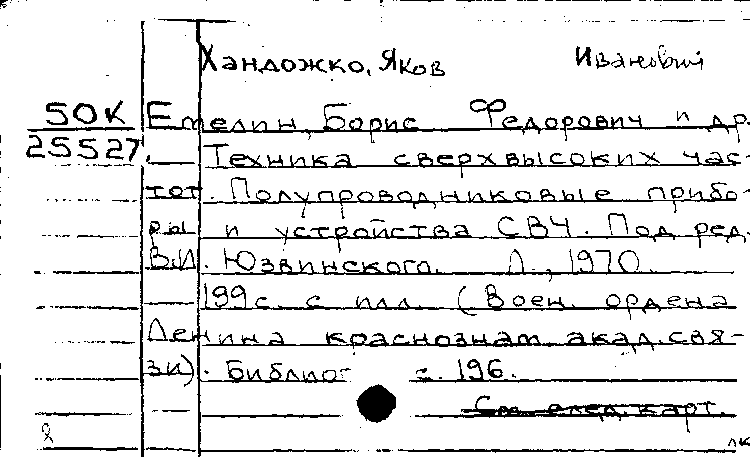 Хандожко, Яков Иванович
50К Емелин, Борис Федорович и др.
25527. Техника сверхвысоких час-
тот. Полупроводниковые прибо-
ры и устройства СВЧ. Под ред.
В.И. Юзвинского. Л., 1970.
199 с. с илл. (Воен. ордена
Ленина краснознам. акад. свя-
зи). Библиог с. 196.
См. след. карт.